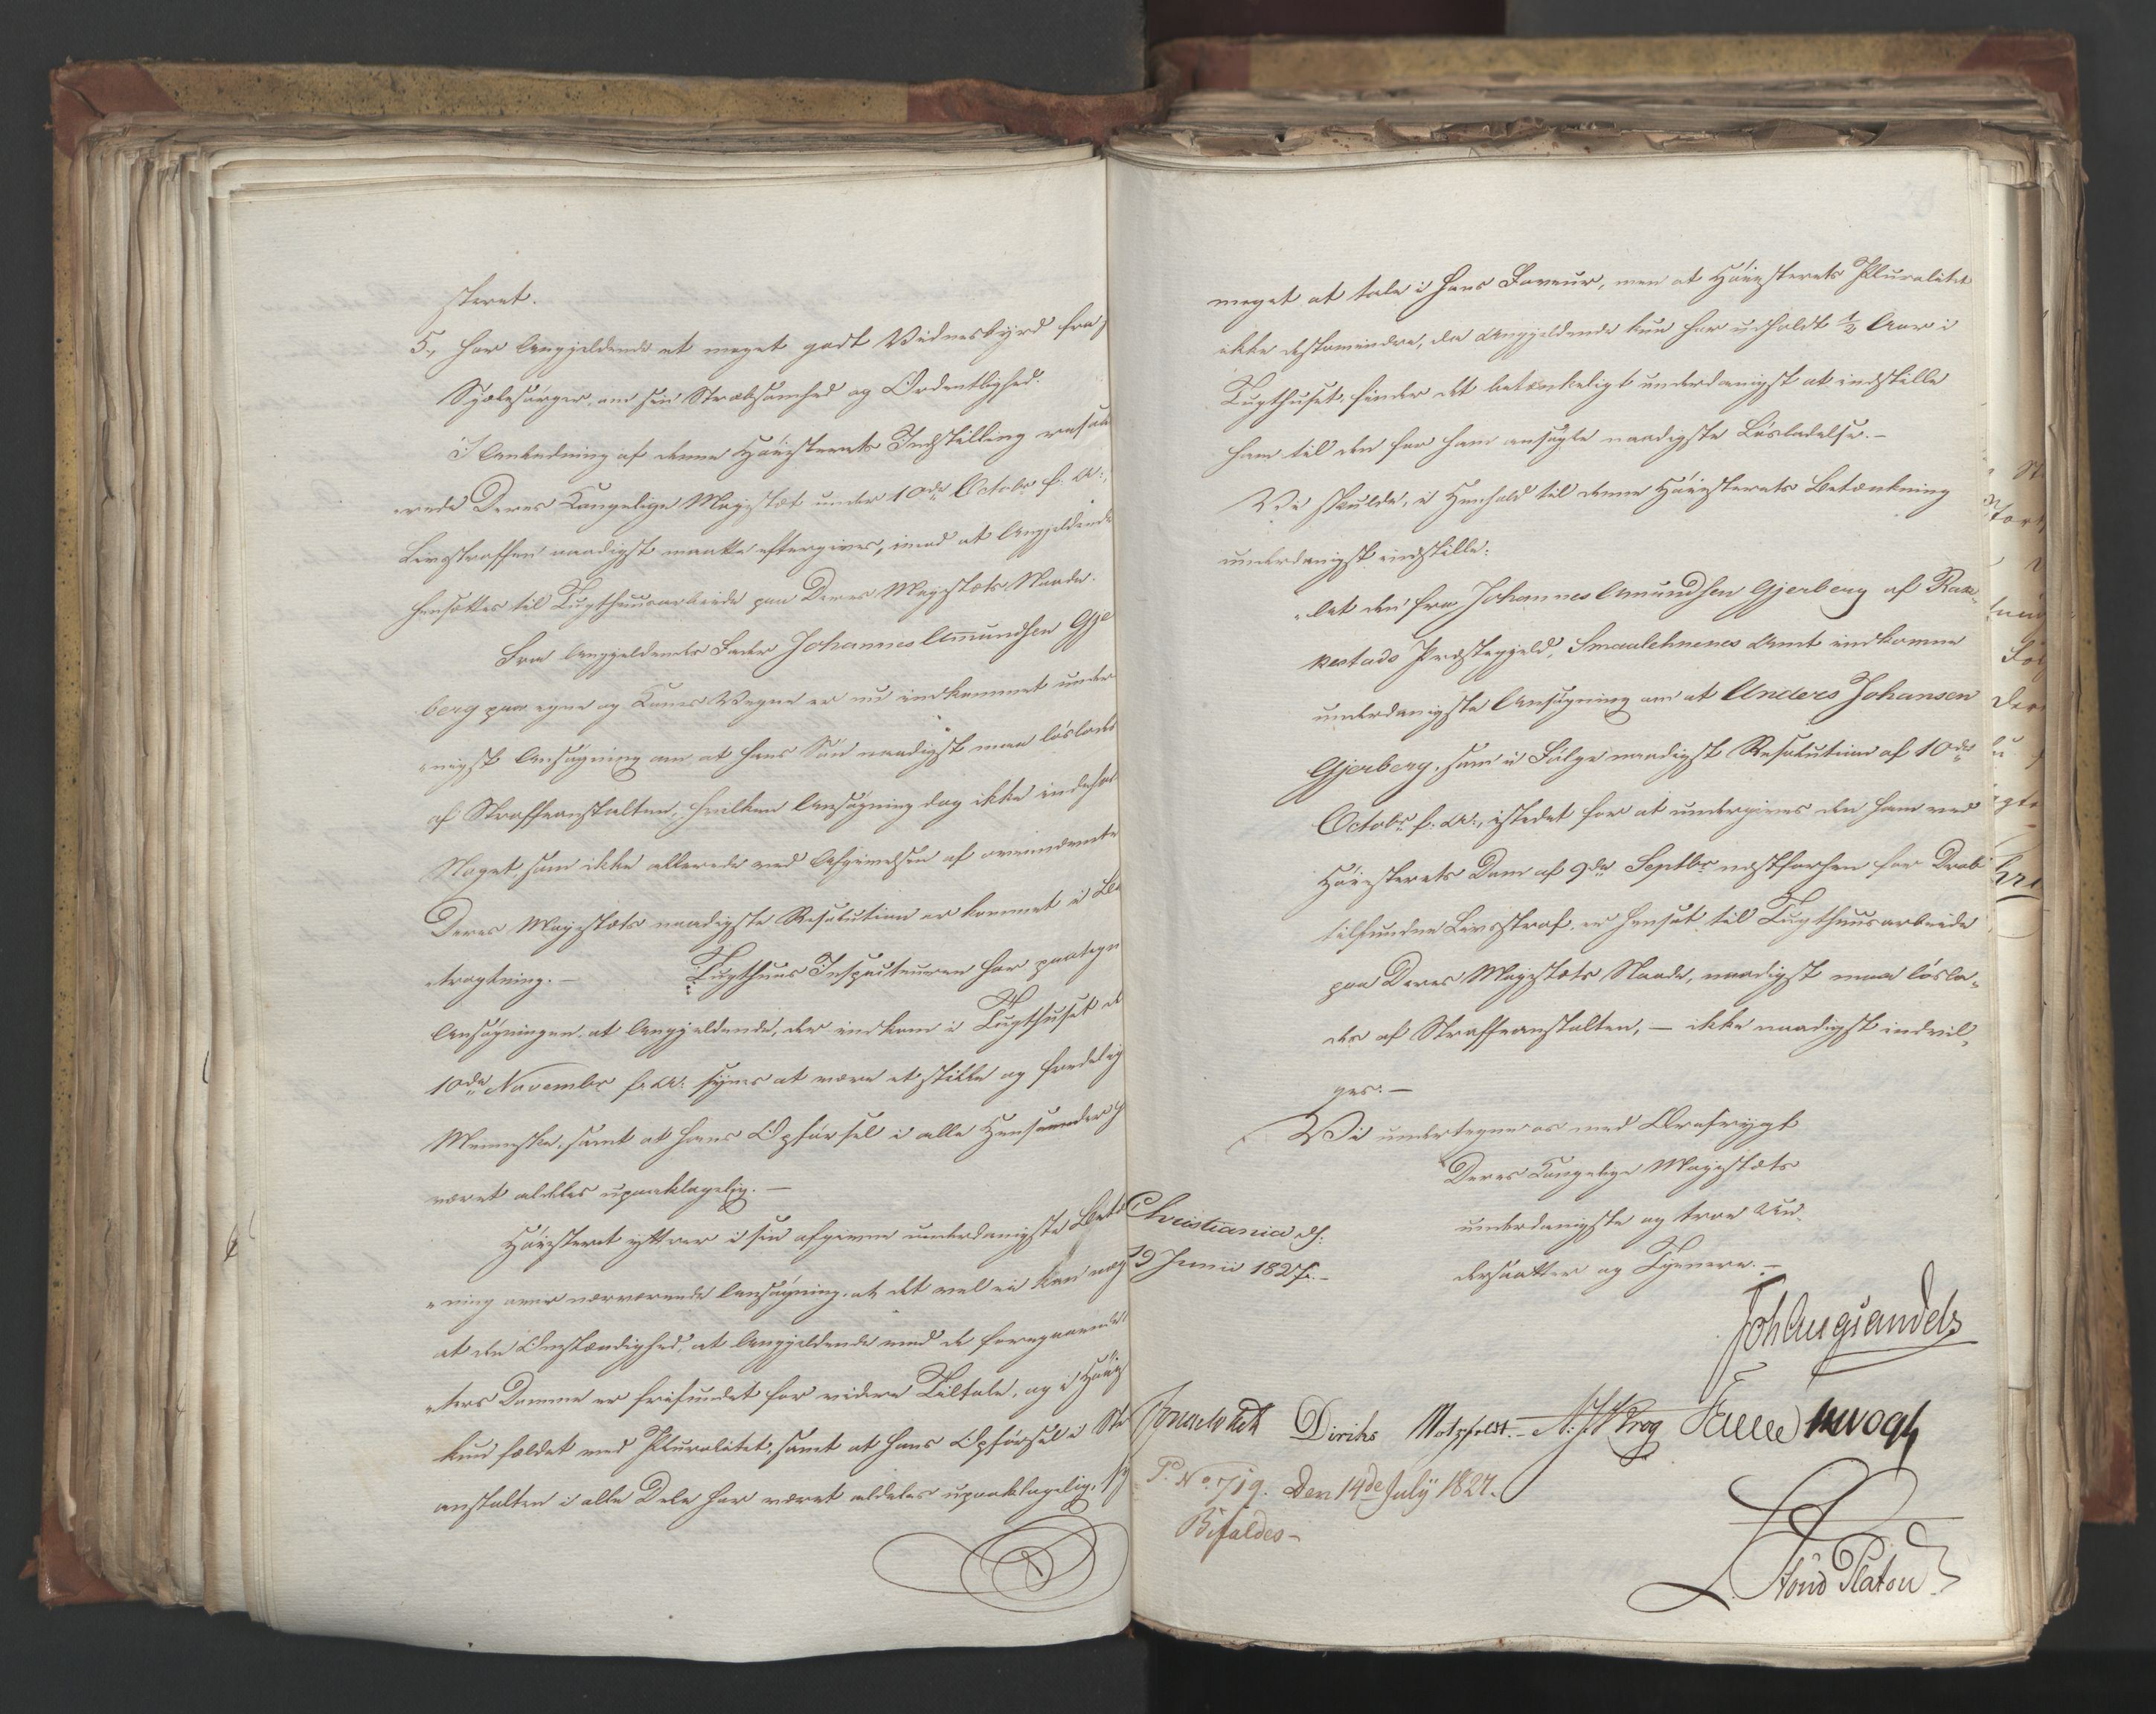 steret.
5, har Angjeldende et meget godt Vidnesbyrd fra s
Sjælesørger, om sin Stræbsomhed og Ordentlighed.
I Anledning af denne Høiesterets Indstilling resol
verede Deres Kongelige Majestæt under 10de Octobr f. A:,
Livsstraffen naadigst maatte eftergives, imod at Angjeldende
hensættes til Tugthuusarbeide paa Deres Majestæts Naade.
Fra Angjeldendes Fader Johannes Amundsen Gje
berg paa egne og Kones Vegne er nu indkommet under
nigst Ansøgning om, at hans Søn naadigst maa løslades
af Straffeanstalten, hvilken Ansøgning dog ikke indehol
Noget, som ikke allerede ved Afgivelsen af ovennævnte
Deres Majestæts naadigste Resolution er kommet i Be
tragtning. — Tugthuus Inspecteuren har paategn
Ansøgningen, at Angjeldende, der indkom i Tugthuset d
10de Novembr f. A. synes at være et stille og fredelig
Menneske, samt at hans Opførsel i alle Henseender h
været aldeles upaaklagelig. —
Høiesteret yttrer i sin afgivne underdanigste Betæ
ning over nærværende Ansøgning, at det vel ei kan næg
at den Omstændighed, at Angjeldende ved de foregaaende
ters Domme er frifundet for videre Tiltale, og i Høies
kun fældet ved Pluralitet, samt at hans Opførsel i Str
anstalten i alle Dele har været aldeles upaaklagelig, sy
meget at tale i hans Faveur, men at Høiesterets Pluralitet
ikke destomindre, da Angjeldende kun har udholdt ½ Aar i
Tugthuset, finder det betænkeligt underdanigst at indstille
ham til den for ham ansøgte naadigste Løsladelse. —
Vi skulde, i Henhold til denne Høiesterets Betænkning
underdanigst indstille:
"at den fra Johannes Amundsen Gjerberg af Rak-
kestads Præstegjeld, Smaalehnenes Amt indkomne
underdanigste Ansøgning om at Anders Johansen
Gjerberg, som i Følge naadigst Resolution af 10de
Octobr f. A., istedet for at undergives den ham ved
Høiesterets Dom af 9de Septbr næstforhen for Drab
tilfundne Livsstraf, er hensat til Tugthuusarbeide
paa Deres Majestæts Naade, naadigst maa løsla-
des af Straffeanstalten, — ikke naadigst indvil-
ges. —
Vi undertegne os med Ærefrygt
Deres Kongelige Majestæts
underdanigste og troe Un-
dersaatter og Tjenere. —
Christiania d.
19 Junii 1827. —
Joh Aug Sandels
Diriks Motzfeldt. — A. J. Krog Fasting
P. No. 719. Den 14de July 1827.
Bifaldes —